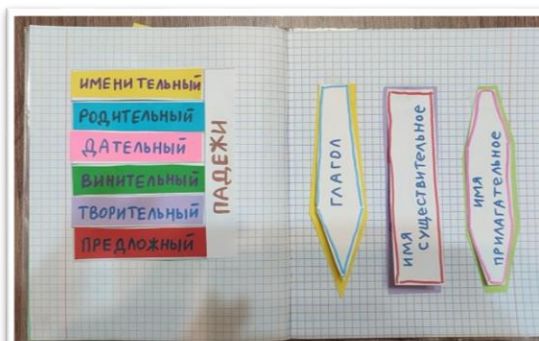 ИМЕНИТЕЛЬНЫЙ
РОДИТЕЛЬНЫЙ
ДАТЕЛЬНЫЙ
ВИНИТЕЛЬНЫЙ
ТВОРИТЕЛЬНЫЙ
ПРЕДЛОЖНЫЙ
ПАДЕЖИ
ГЛАГОЛ
ИМЯ
СУЩЕСТВИТЕЛЬНОЕ
ИМЯ
ПРИЛАГАТЕЛЬНОЕ